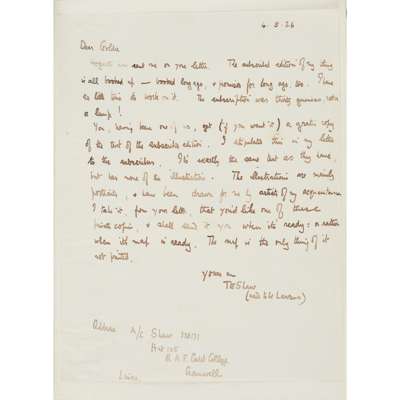 4.3.26
Dear Goldie
sent me on your letter. The subscribed edition of my thing
is all booked up — booked long ago, & promised for long ago, too. I have
no time to work on it. The subscription was thirty guineas, with
a lump!
You, having been one of us, get (if you want it) a gratis copy
of the text of the subscribers edition. I stipulate this in my letter
to the subscribers. It is exactly the same text as they have,
but has none of the illustrations. The illustrations are mainly
portraits, & have been drawn for me by artists of my acquaintance
I take it, from your letter, that you'd like one of these
private copies, & shall send it you when it's ready: or rather
when its map is ready. The map is the only thing of it
not printed.
Yours ever
T E Shaw
(used to be Lawrence)
Address A/c Shaw 338171
Hut 105
R A F Cadet College
Cranwell
Lincs.